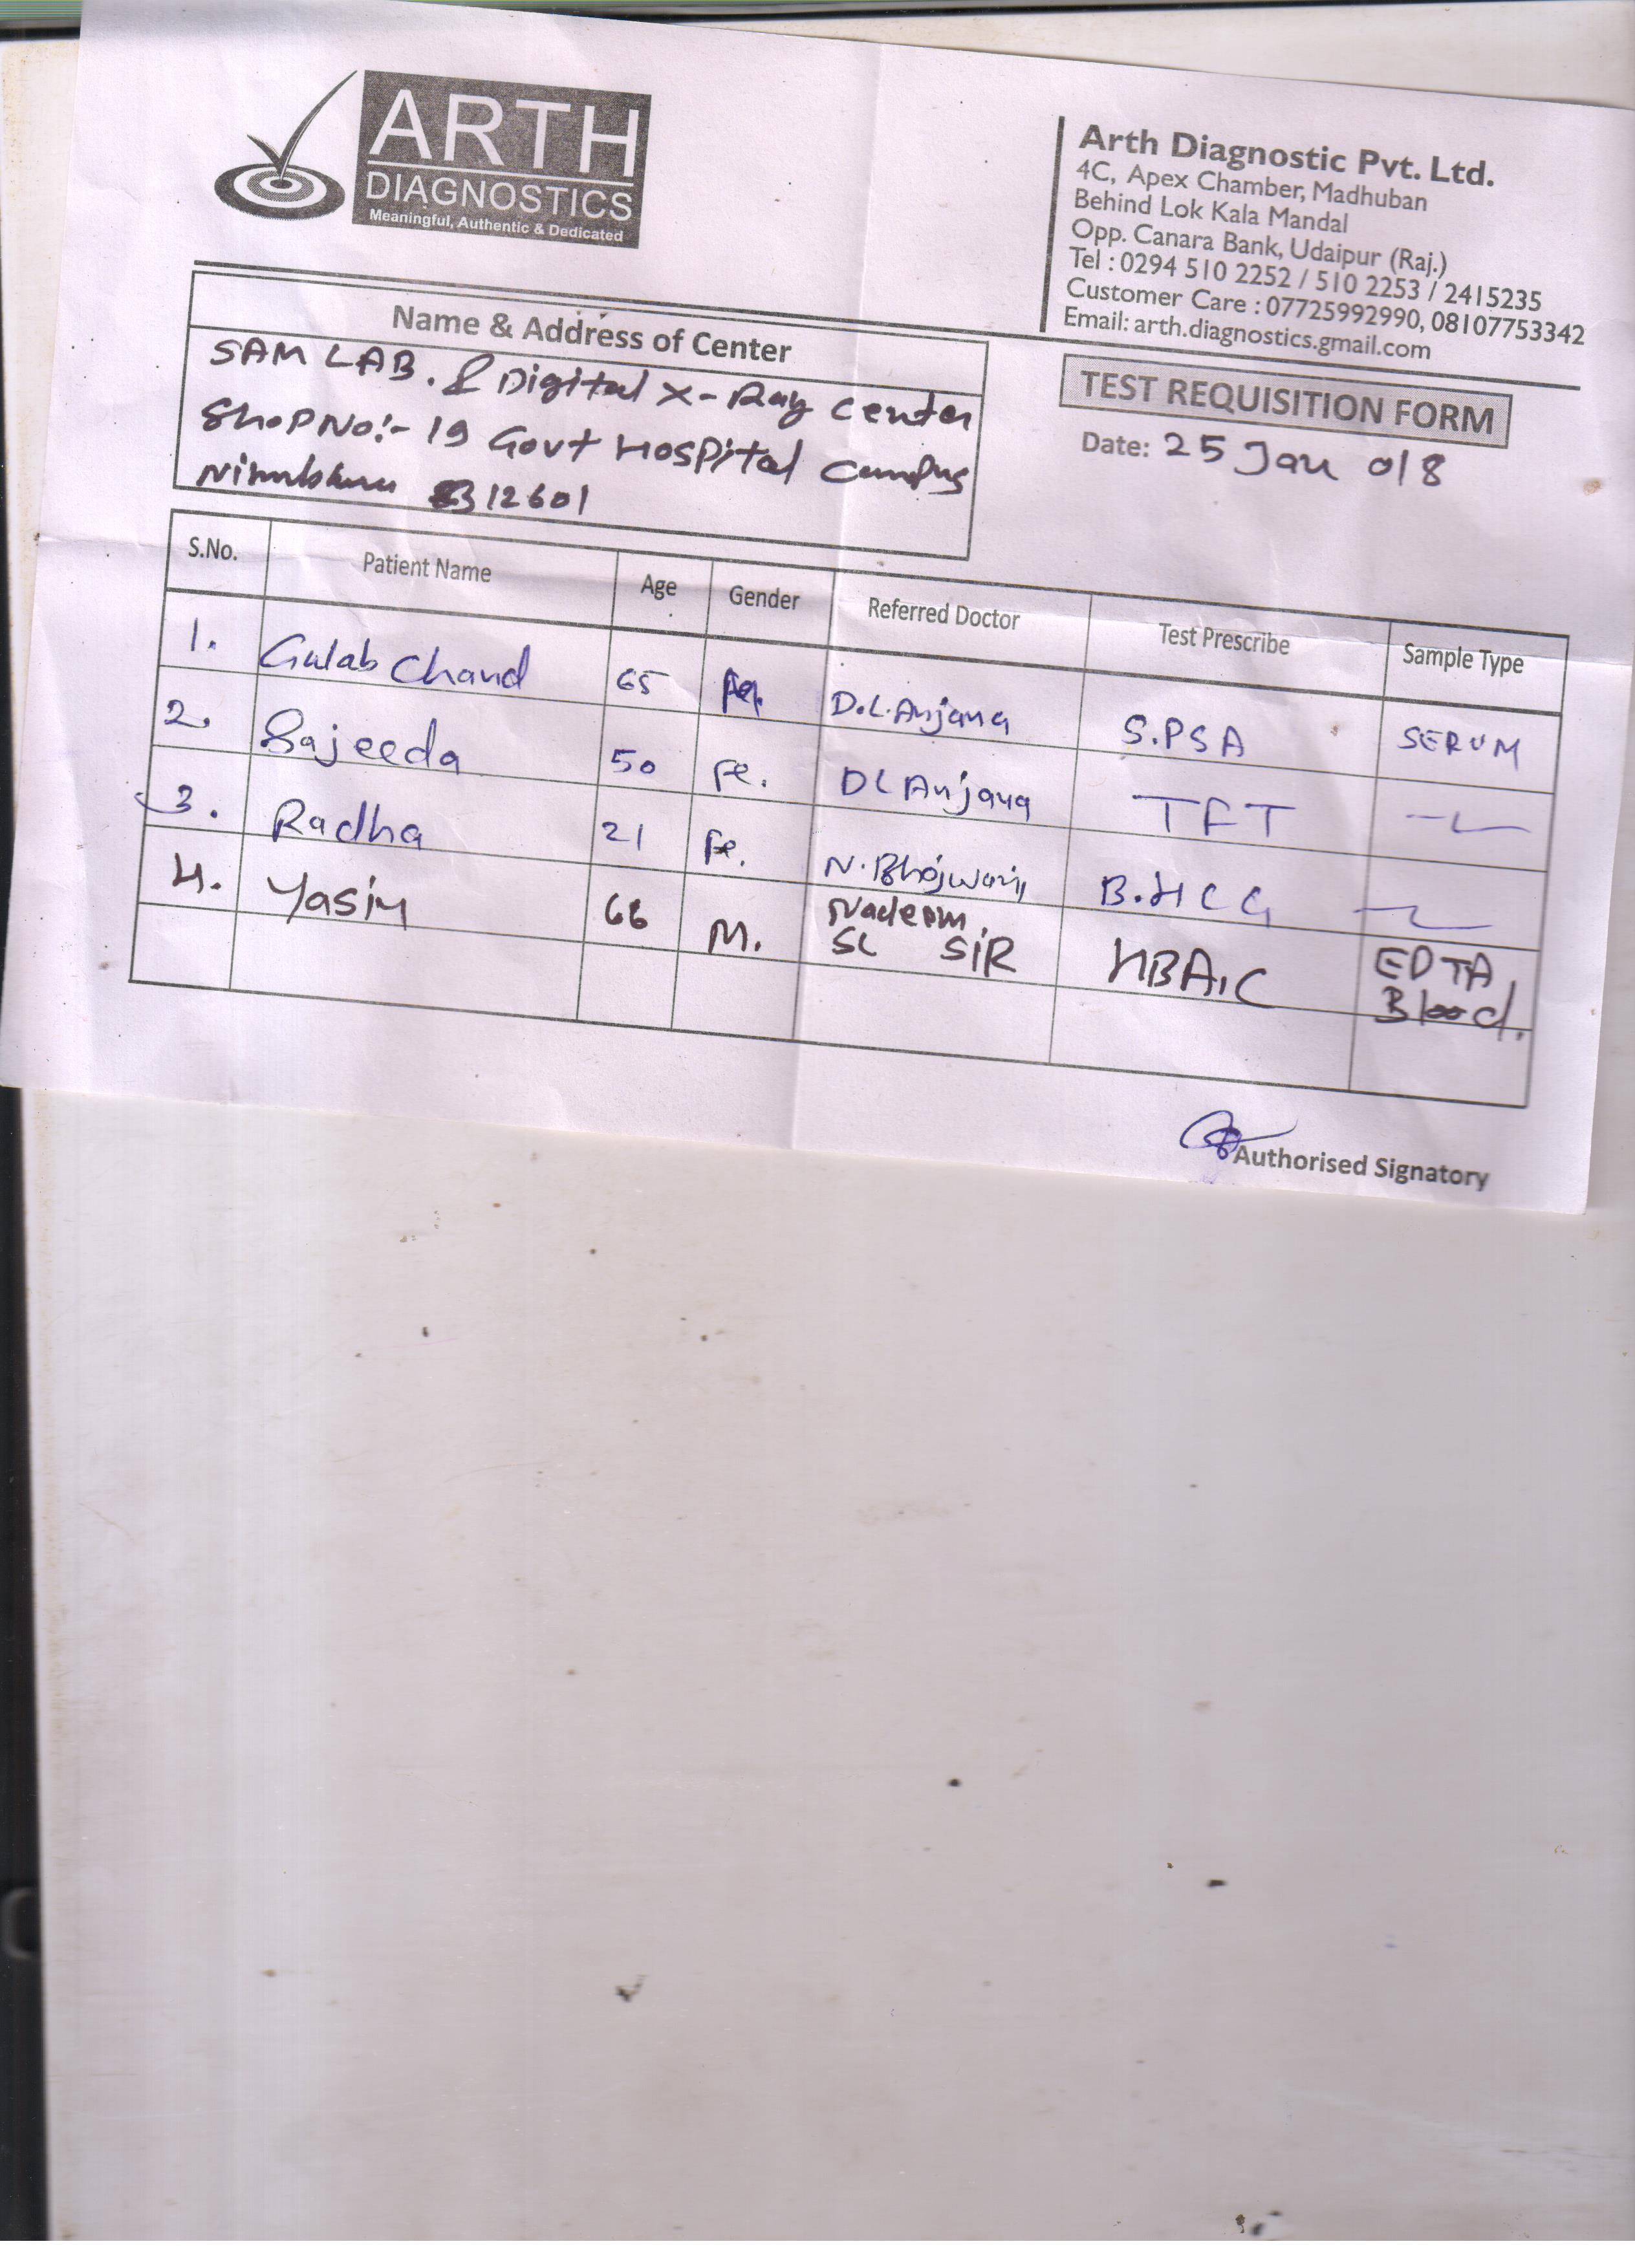 ARTH
DIAGNOSTICS
Meaningful, Authentic & Dedicated
Arth Diagnostic Pvt. Ltd.
4C, Apex Chamber, Madhuban
Behind Lok Kala Mandal
Opp. Canara Bank, Udaipur (Raj.)
Tel : 0294 510 2252 / 510 2253 / 2415235
Customer Care : 07725992990, 08107753342
Email: arth.diagnostics.gmail.com
Name & Address of Center
SAM LAB. & Digital X-Ray Center
Shop No:- 19 Govt Hospital Campus
312601
TEST REQUISITION FORM
Date: 25 Jan 018
S.No. Patient Name Age Gender Referred Doctor Test Prescribe Sample Type
1. Gulab Chand 65 D.L. Anjana S.PSA SERUM
2. Sajeeda 50 Fe. DL Anjana TFT
3. Radha 21 Fe. N. Bhojwani B.HCG
4. Yasin 66 M. Nadeem SL SIR HBA1C EDTA Blood.
Authorised Signatory